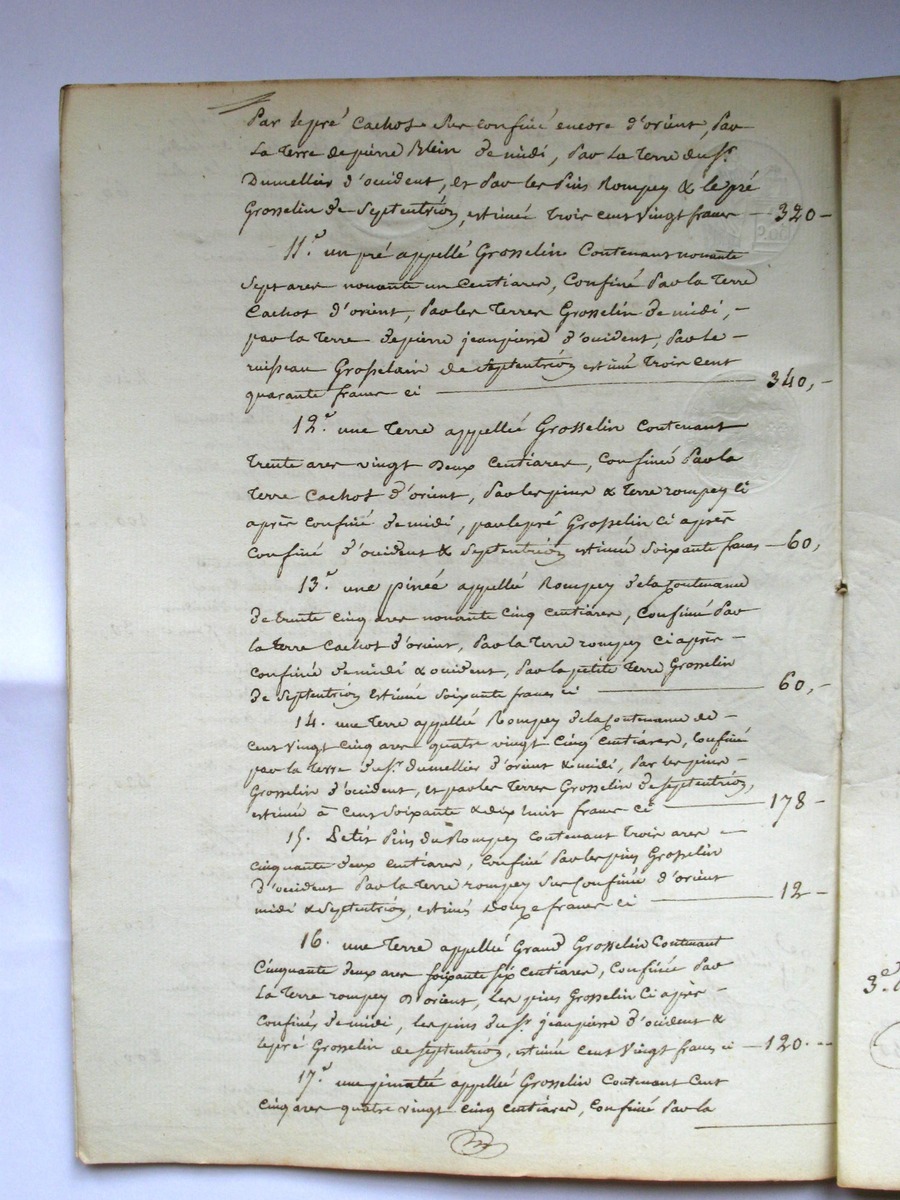 par le pré Cachot sus confiné encore d'orient, par
La Terre de pierre Blein de midi, par La Terre du Sr.
Dumellier d'occident, et par les Pins Rompey & le pré
Grosselin de Septentrion, estimée trois cent vingt francs — 320 —
11°. un pré appellé Grosselin Contenant nonante
Sept ares nonante un Centiares, Confiné par la Terre
Cachot d'orient, par les Terres Grosselin de midi, —
par la Terre de pierre jeanpierre d'occident, par le —
ruisseau Grosselain de Septentrion estimé trois cent
quarante francs ci — 340, —
12°. une Terre appellée Grosselin Contenant
trente ares vingt deux Centiares, Confiné par la
Terre Cachot d'orient, par les pins & Terre rompey ci
après Confiné de midi, par le pré Grosselin ci après
Confiné d'occident & Septentrion estimée Soixante francs — 60,
13°. une pinée appellé Rompey de la Contenance
de trente cinq ares nonante cinq centiares, Confiné par
la terre Cachot d'orient, par la Terre rompey ci après —
Confiné de midi & occident, par la petite Terre Grosselin
de Septentrion estimée Soixante francs ci — 60, —
14. une Terre appellée Rompey de la Contenance de —
Cent vingt cinq ares quatre vingt Cinq Centiares, Confiné
par la Terre du Sr. dumellier d'orient & midi, par les pins —
Grosselin d'occident, et par les Terres Grosselin de Septentrion,
estimée à Cent Soixante & dix huit francs ci — 178 —
15. Petit Pins du Rompey Contenant trois ares —
cinquante deux centiares, Confiné par les pins Grosselin
d'occident par la Terre rompey Sus Confiné d'orient
midi & Septentrion, estimés Douze francs ci — 12 —
16. une Terre appellée Grand Grosselin Contenant
Cinquante deux ares Soixante Six Centiares, Confinée par
La Terre rompey d'orient, les pins Grosselin ci après —
Confinés de midi, les pins du Sr. jeanpierre d'occident &
le pré Grosselin de Septentrion, estimée Cent vingt francs ci — 120. —
17°. une pinatée appellée Grosselin Contenant Cent
Cinq ares quatre vingt Cinq Centiares, Confiné par la
3e.